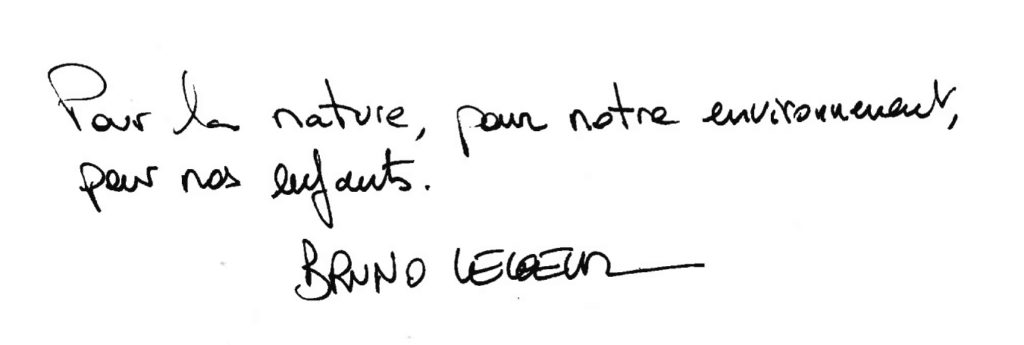 Pour la nature, pour notre environnement,
pour nos enfants.
BRUNO LECOEUR